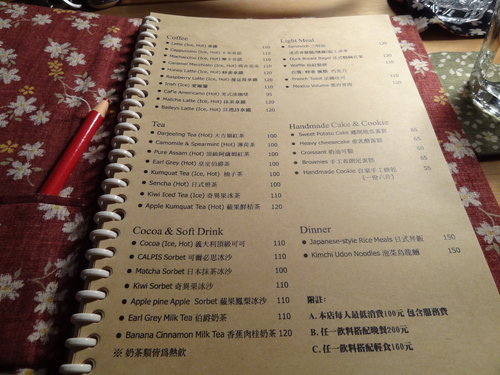 Coffee
Latte (Ice, Hot) 拿鐵 110
Cappuccino (Ice, Hot) 卡布奇諾 110
Machaccino (Ice, Hot) 摩卡奇諾 110
Caramel Macchiato (Ice, Hot) 焦糖瑪奇朵 110
Honey Latte (Ice, Hot) 蜂蜜拿鐵 120
Raspberry Latte (Ice, Hot) 覆盆莓拿鐵 120
Irish (Ice) 愛爾蘭 110
Café Americano (Hot) 美式淡咖啡 95
Matcha Latte (Hot) 抹茶拿鐵 120
Baileys Latte (Ice, Hot) 貝禮詩拿鐵 120
Tea
Darjeeling Tea (Hot) 大吉嶺紅茶 100
Camomile & Spearmint (Hot) 薄荷茶 100
Pure Assam (Hot) 頂級阿薩姆紅茶 100
Earl Grey (Hot) 皇室伯爵茶 100
Kumquat Tea (Ice, Hot) 柚子茶 100
Sencha (Hot) 日式煎茶 100
Kiwi Iced Tea (Ice) 奇異果冰茶 110
Apple Kumquat Tea (Hot) 蘋果鮮桔茶 120
Cocoa & Soft Drink
Cocoa (Ice, Hot) 義大利頂級可可 110
CALPIS Sorbet 可爾必思冰沙 110
Matcha Sorbet 日本抹茶冰沙 100
Kiwi Sorbet 奇異果冰沙 110
Apple pine Apple Sorbet 蘋果鳳梨冰沙 110
Earl Grey Milk Tea 伯爵奶茶 110
Banana Cinnamon Milk Tea 香蕉肉桂奶茶 120
※ 奶茶類皆為熱飲
Light Meal
Sandwich 三明治 120
Duck Breast Bagel 法式鴨胸貝果 120
Waffle 格紋鬆餅 120
French Toast 法國吐司
Mexico Volume 墨西哥捲
Handmade Cake & Cookie
Sweet Potato Cake 鄉間地瓜蛋糕 65
Heavy cheesecake 重乳酪蛋糕 65
Croissant 奶油可頌 65
Brownies 手工布朗尼蛋糕 65
Handmade Cookie 自家手工餅乾 55
(一份六片)
Dinner
Japanese-style Rice Meals 日式丼飯 150
Kimchi Udon Noodles 泡菜烏龍麵 150
附註:
A. 本店每人最低消費100元 包含服務費
B. 任一飲料搭配晚餐200元
C. 任一飲料搭配輕食160元